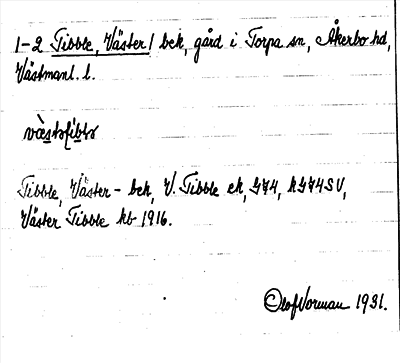 1-2 Tibble, Väster/ bek, gård i Torpa sn, Åkerbo hd,
Västmanl. l.
Tibble, Väster- bek, V. Tibble ek, G74, kG74SV,
Väster Tibble kb 1916.
Olof Norman 1931.